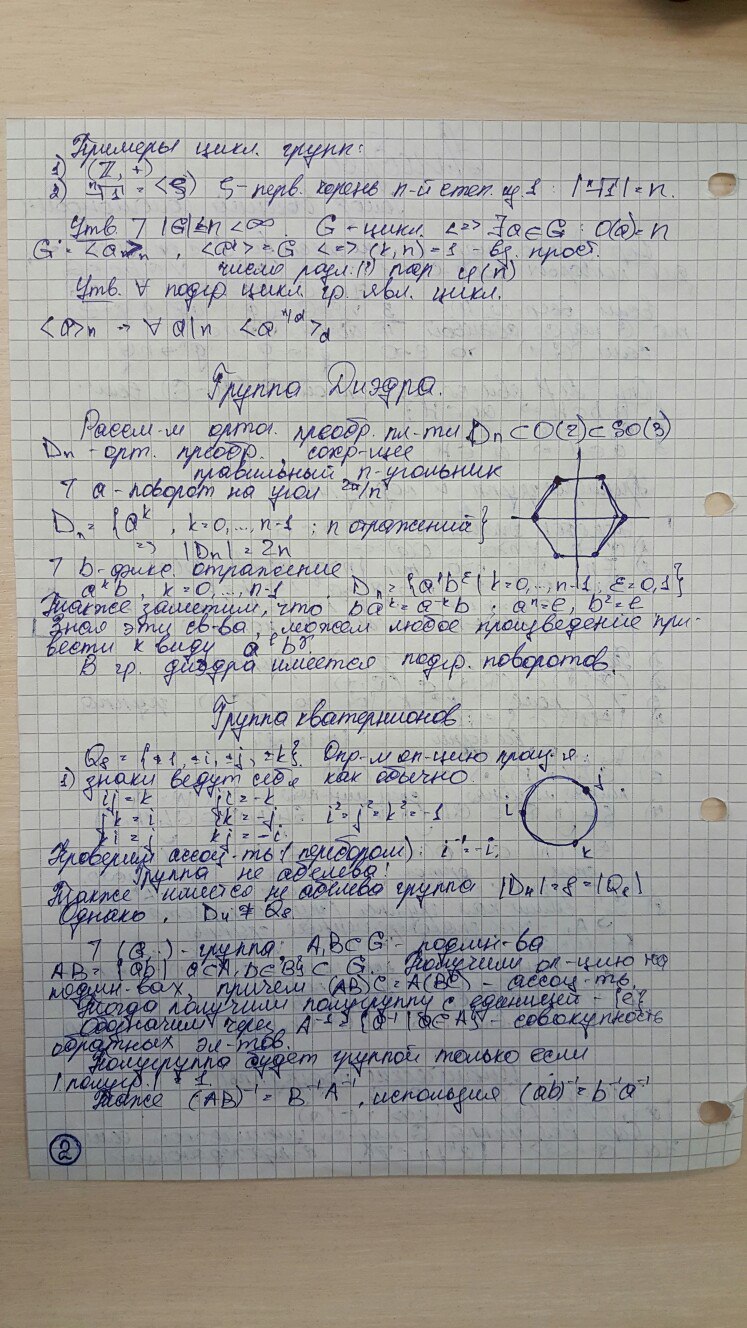 Примеры цикл. групп:
1) (ℤ, +)
2) ⁿ√1 = <ξ> ξ - перв. корень n-й степ. из 1 : |ⁿ√1| = n.
Утв. ] |G| = n < ∞. G - цикл. <=> ∃ a ∈ G : O(a) = n
G = <a>n , <aᵏ> = G <=> (k, n) = 1 - вз. прост.
число разл. пар φ(n)
Утв. ∀ подгр. цикл. гр. явл. цикл.
<a>n → ∀ d|n <a^(n/d)>d
Группа Диэдра.
Рассм-м орто. преобр. пл-ти Dn ⊂ O(2) ⊂ SO(3)
Dn - орт. преобр., сохр-щее
правильный n-угольник
] a - поворот на угол 2π/n
Dn = {aᵏ, k=0,...,n-1 ; n отражений}
=> |Dn| = 2n
] b - фикс. отражение
aᵏb, k=0,...,n-1. Dn = {aᵏbᵋ | k=0,...,n-1, ε=0,1}
Также заметим, что baᵏ = a⁻ᵏb ; aⁿ=e, b²=e
Зная эти св-ва, можем любое произведение при-
вести к виду
В гр. диэдра имеется подгр. поворотов.
Группа кватернионов:
Q₈ = {±1, ±i, ±j, ±k}. Опр-м оп-цию произ-я:
1) знаки ведут себя как обычно.
ij = k ji = -k
jk = i ik = -j i² = j² = k² = -1
ki = j kj = -i
i j k
Проверим ассоц-ть (перебором): i⁻¹ = -i.
Группа не абелева!
Также имеется не абелева группа |D₄| = 8 = |Q₈|
Однако, D₄ ≇ Q₈
] (G, ·) - группа; A, B ⊂ G - подмн-ва
AB = {ab | a∈A, b∈B} ⊂ G. Получили оп-цию на
подмн-вах, причем (AB)C = A(BC) - ассоц-ть.
Тогда получили полугруппу с единицей - {e}
Обозначим через A⁻¹ = {a⁻¹ | a∈A} - совокупность
обратных эл-тов.
Полугруппа будет группой только если
|полугр.| = 1.
Также (AB)⁻¹ = B⁻¹A⁻¹, используя (ab)⁻¹ = b⁻¹a⁻¹
2